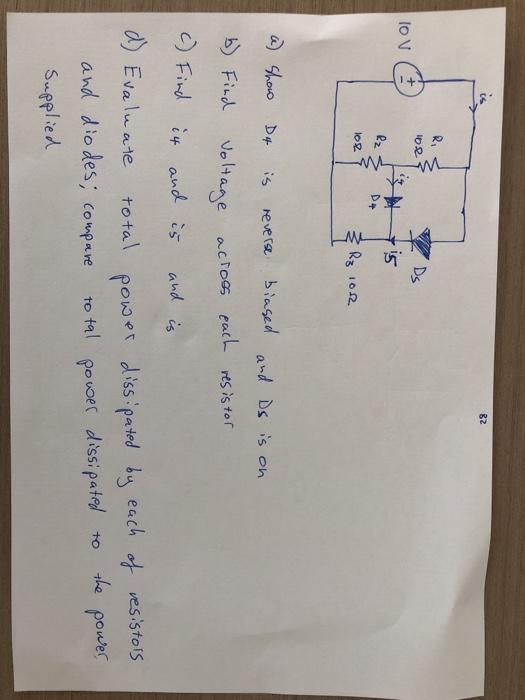 82
is
10 V
R1
10Ω
R2
10Ω
i4
D4
D5
i5
R3 10Ω
a) Show D4 is reverse biased and D5 is on
b) Find voltage across each resistor
c) Find i4 and i5 and is
d) Evaluate total power dissipated by each of resistors
and diodes; compare total power dissipated to the power
Supplied